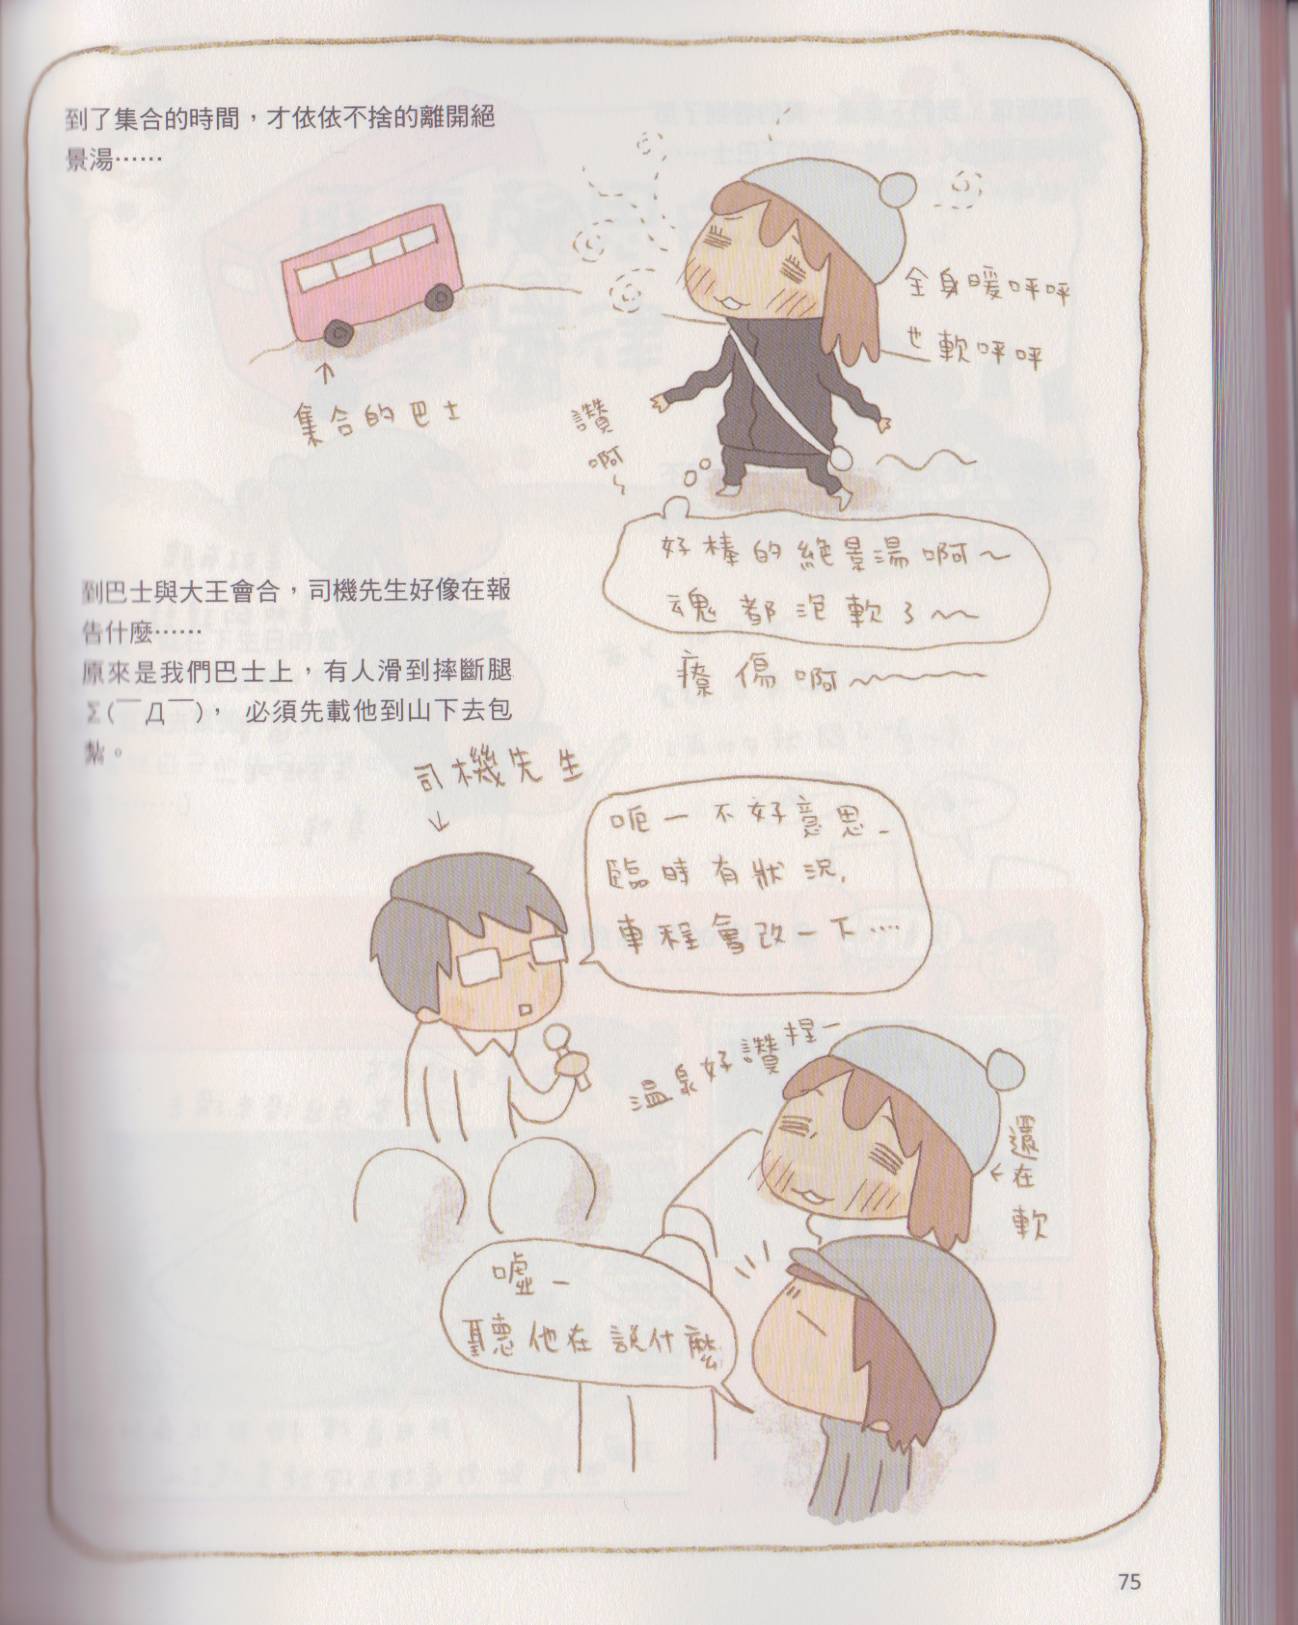 到了集合的時間，才依依不捨的離開絕
景湯……
全身暖呼呼
也軟呼呼
集合的巴士
讚
啊～
好棒的絕景湯啊～
魂都泡軟了～～
療傷啊～～～
到巴士與大王會合，司機先生好像在報
告什麼……
原來是我們巴士上，有人滑到摔斷腿
Σ(￣Д￣)， 必須先載他到山下去包
紮。
司機先生
呃－不好意思－
臨時有狀況，
車程會改一下‧‧‧‧
溫泉好讚捏－
還
在
軟
噓－
聽他在說什麼
75